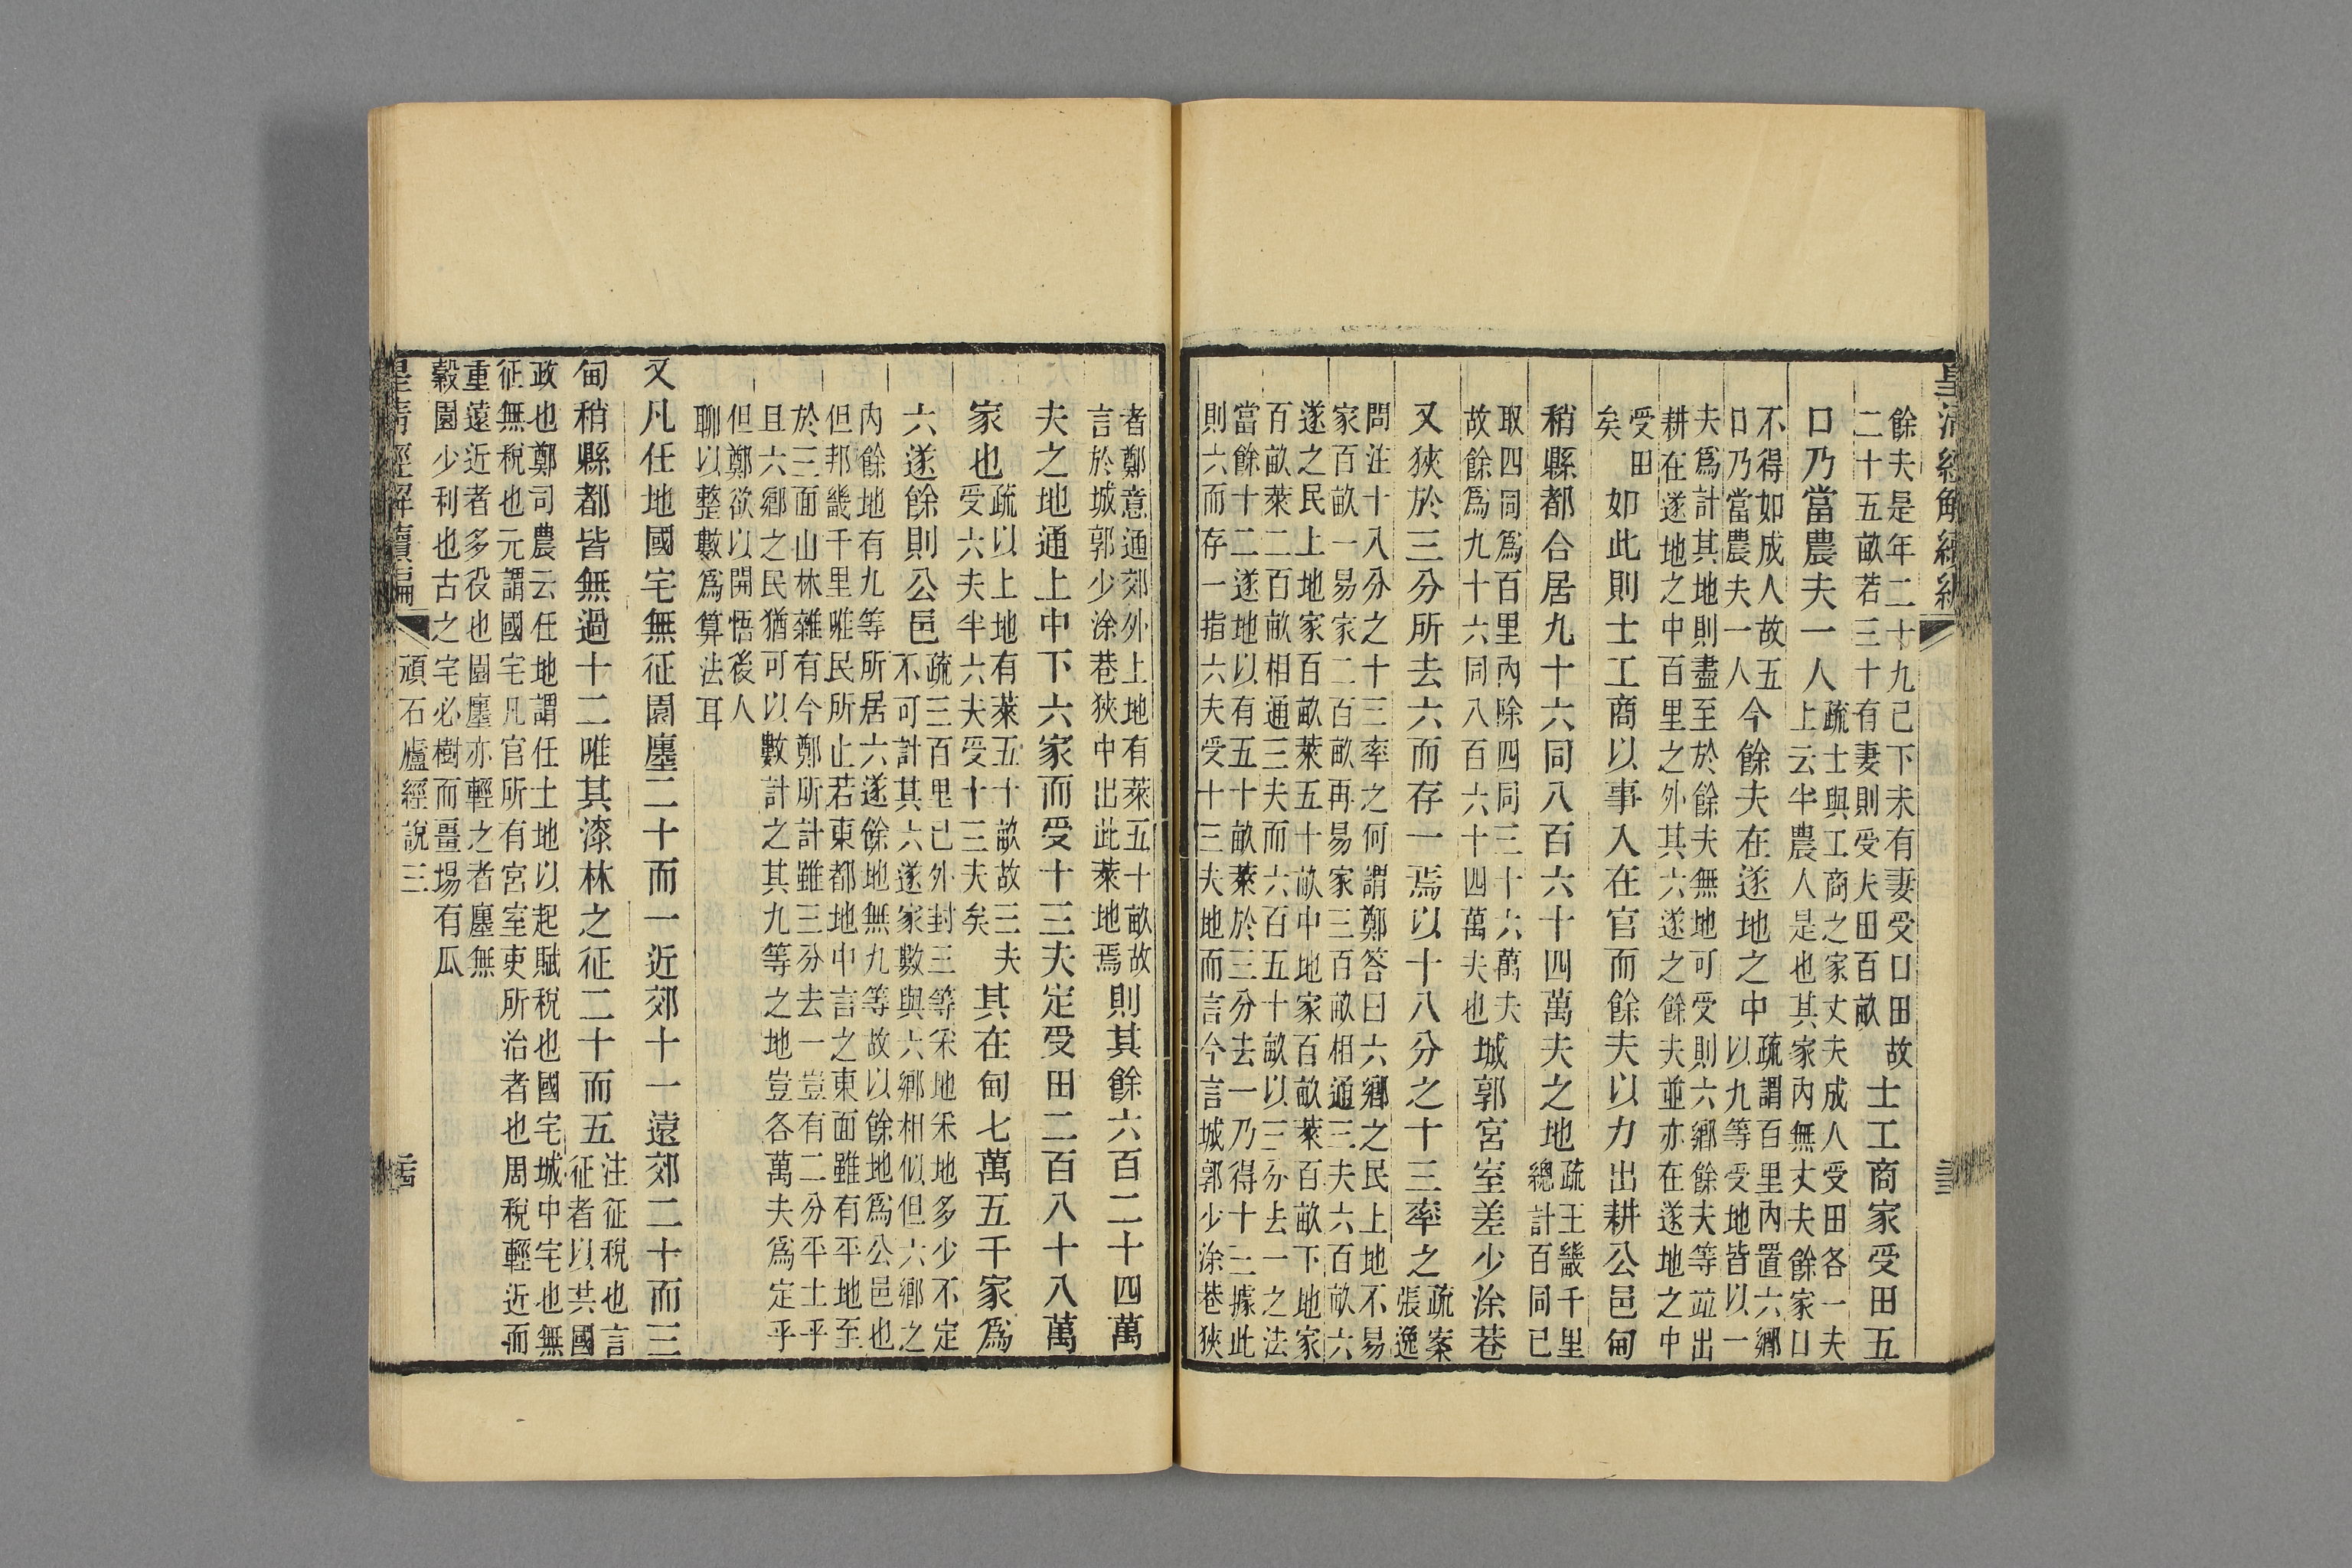 皇清經解續編
餘夫是年二十九已下未有妻受口田故
二十五畝若三十有妻則受夫田百畝
士工商家受田五
口乃當農夫一人
疏士與工商之家丈夫成人受田各一夫
上云半農人是也其家內無丈夫餘家口
不得如成人故五
口乃當農夫一人
今餘夫在遂地之中
疏謂百里內置六鄉
以九等受地皆以一
夫爲計其地則盡至於餘夫無地可受則六鄉餘夫等並出
耕在遂地之中百里之外其六遂之餘夫並亦在遂地之中
受田
矣
如此則士工商以事入在官而餘夫以力出耕公邑甸
稍縣都合居九十六同八百六十四萬夫之地
疏王畿千里
總計百同已
取四同爲百里內除四同三十六萬夫
故餘爲九十六同八百六十四萬夫也
城郭宮室差少涂巷
又狹於三分所去六而存一焉以十八分之十三率之
疏案
張逸
問注十八分之十三率之何謂鄭答曰六鄉之民上地不易
家百畝一易家二百畝再易家三百畝相通三夫六百畝六
遂之民上地家百畝萊五十畝中地家百畝萊百畝下地家
百畝萊二百畝相通三夫而六百五十畝以三分去一之法
當餘十二遂地以有五十畝萊於三百畝分去一乃得十三據此
則六而存一指六夫受十三夫地而言今言城郭少涂巷狹
者鄭意通郊外上地有萊五十畝故
言於城郭少涂巷狹中出此萊地焉
則其餘六百二十四萬
夫之地通上中下六家而受十三夫定受田二百八十八萬
家也
疏以上地有萊五十畝故三夫
受六夫半六夫受十三夫矣
其在甸七萬五千家爲
六遂餘則公邑
疏三百里已外封三等采地采地多少不定
不可計其六遂家數與六鄉相似但六鄉之
內餘地有九等所居六遂餘地無九等故以餘地爲公邑也
但邦畿千里唯民所止若東都地中言之東面雖有平地至
於三面山林雜有今鄭所計雖三分去一豈有二分平土乎
且六鄉之民猶可以數計之其九等之地豈各萬夫爲定乎
但鄭欲以開悟後人
聊以整數爲算法耳
又凡任地國宅無征園廛二十而一近郊十一遠郊二十而三
甸稍縣都皆無過十二唯其漆林之征二十而五
注征稅也言
征者以共國
政也鄭司農云任地謂任土地以起賦稅也國宅城中宅也無
征無稅也元謂國宅凡官所有宮室吏所治者也周稅輕近而
重遠近者多役也園廛亦輕之者廛無
穀園少利也古之宅必樹而畺場有瓜
皇清經解續編
頑石廬經說三